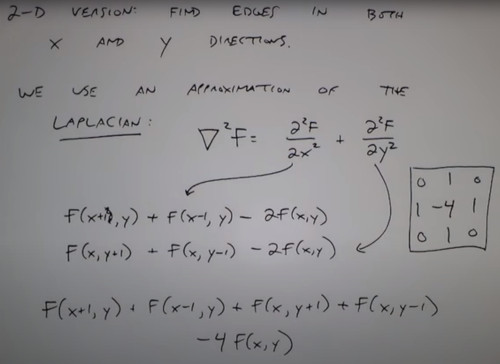 2-D VERSION: FIND EDGES IN BOTH
X AND Y DIRECTIONS.
WE USE AN APPROXIMATION OF THE
LAPLACIAN: ∇²F = ∂²F/∂x² + ∂²F/∂y²
F(x+1,y) + F(x-1,y) - 2F(x,y)
F(x,y+1) + F(x,y-1) - 2F(x,y)
0 1 0
1 -4 1
0 1 0
F(x+1,y) + F(x-1,y) + F(x,y+1) + F(x,y-1)
-4F(x,y)